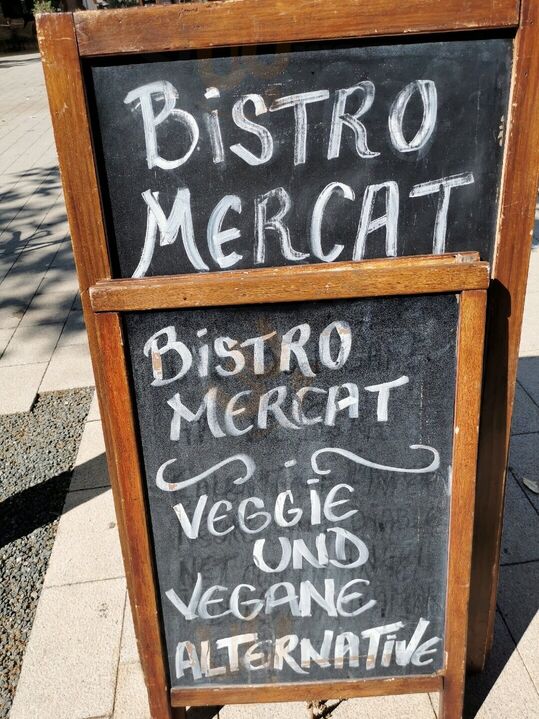 BiSTRO
MERCAT
BiSTRO
MERCAT
VEGGiE
UND
VEGANE
ALTERNATiVE